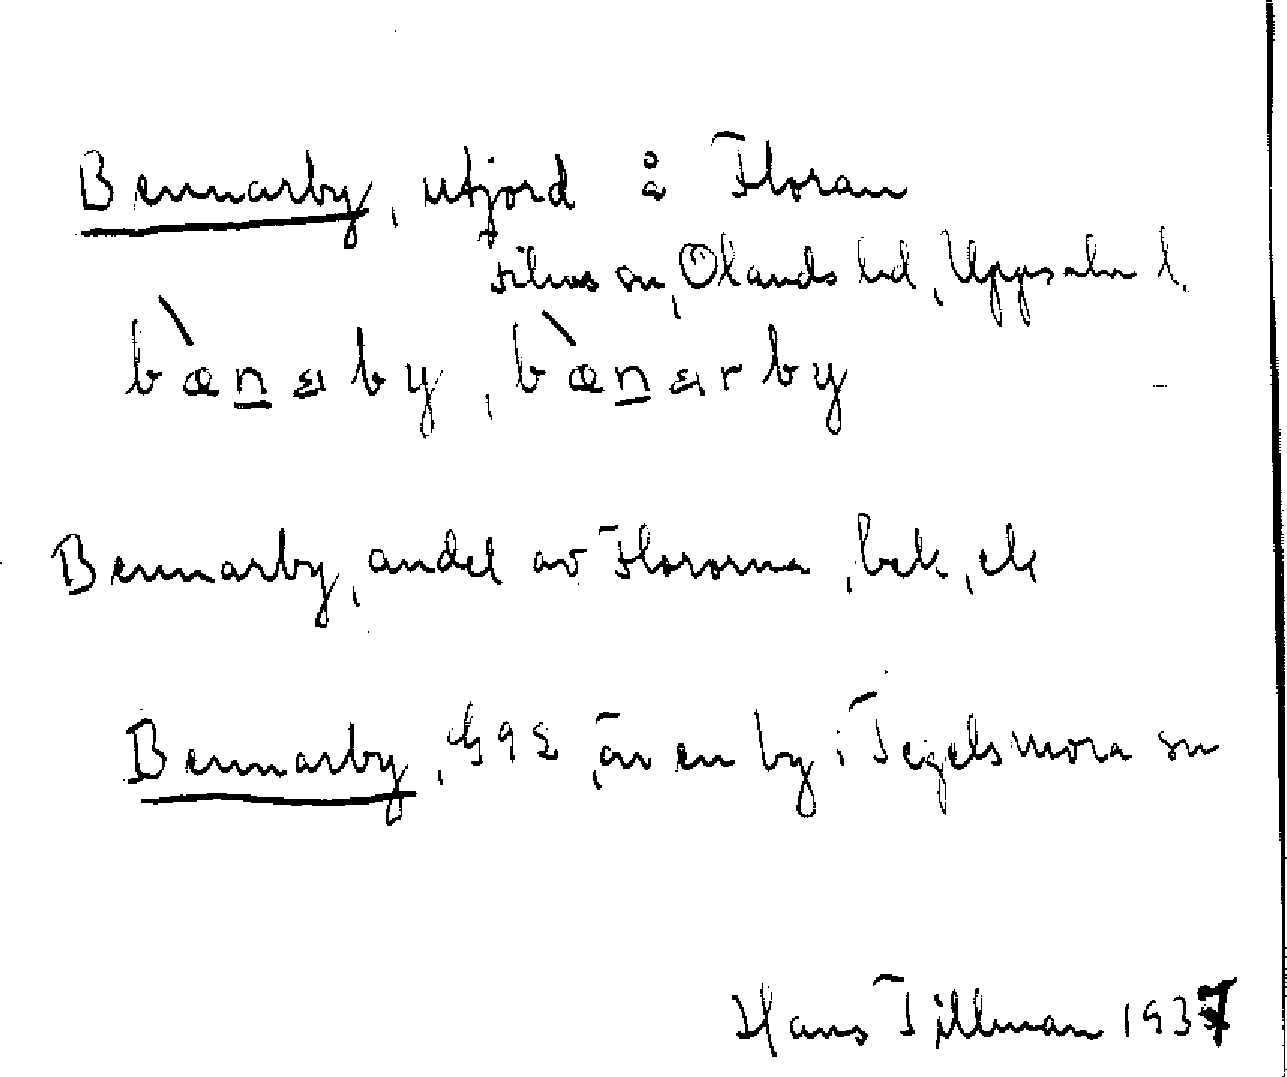 Bennarby, utjord å Floran
Films sn, Olands hd, Uppsala l.
bæ̀naby, bæ̀narby
Bennarby, andel av Flororna, bek, ek
Bennarby, är en by i Tegelsmora sn
Hans Tillman 1937